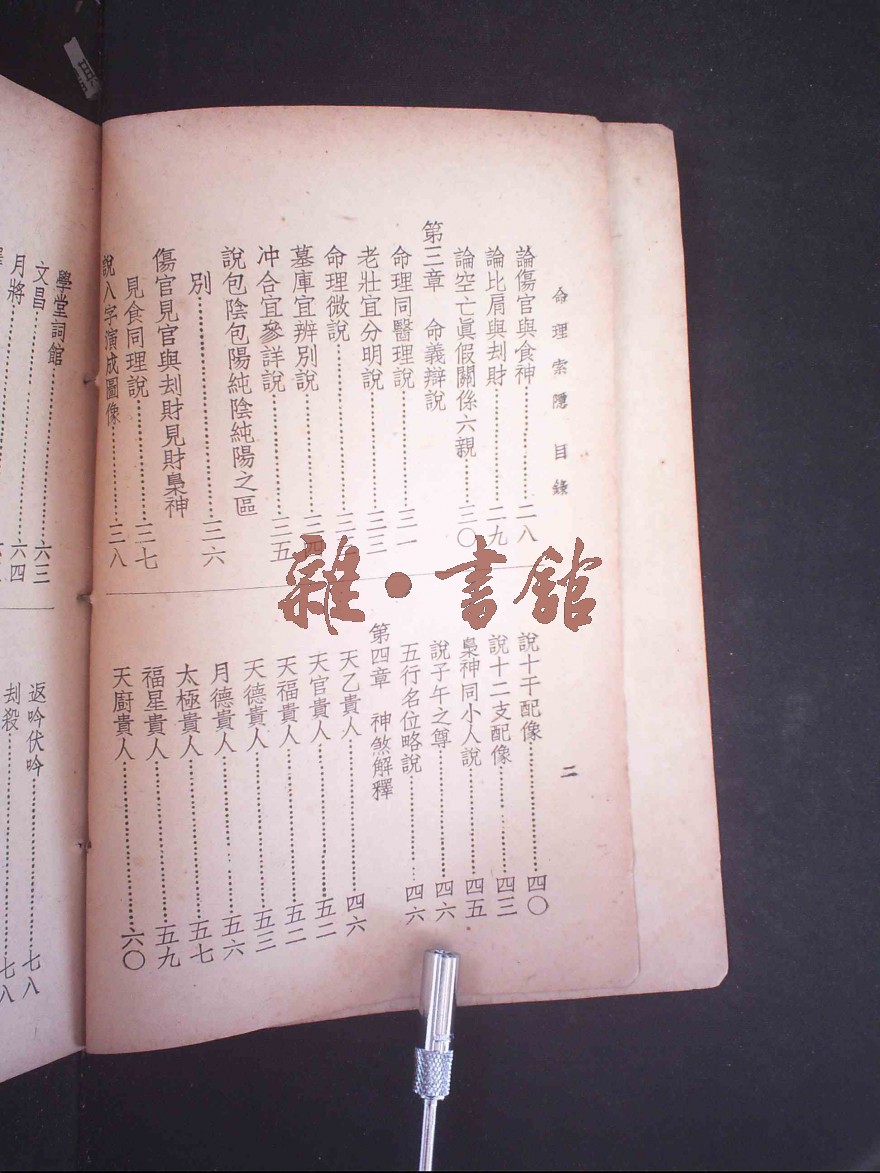 命理索隱 目錄
二
論傷官與食神……二八
論比肩與刦財……二九
論空亡眞假關係六親……三〇
第三章 命義辯說
命理同醫理說……三一
老壯宜分明說……三三
命理微說……三
墓庫宜辨別說……三四
冲合宜參詳說……三五
說包陰包陽純陰純陽之區
別……三六
傷官見官與刦財見財梟神
見食同理說……三七
說入字演成圖像……三八
說十干配像……四〇
說十二支配像……四三
梟神同小人說……四五
說子午之尊……四六
五行名位略說……四六
第四章 神煞解釋
天乙貴人……四六
天官貴人……五二
天福貴人……五二
天德貴人……五三
月德貴人……五六
太極貴人……五七
福星貴人……五九
天廚貴人……六〇
學堂詞館
文昌……六三
月將……六四
返吟伏吟……七八
刦殺……七八
雜·書館